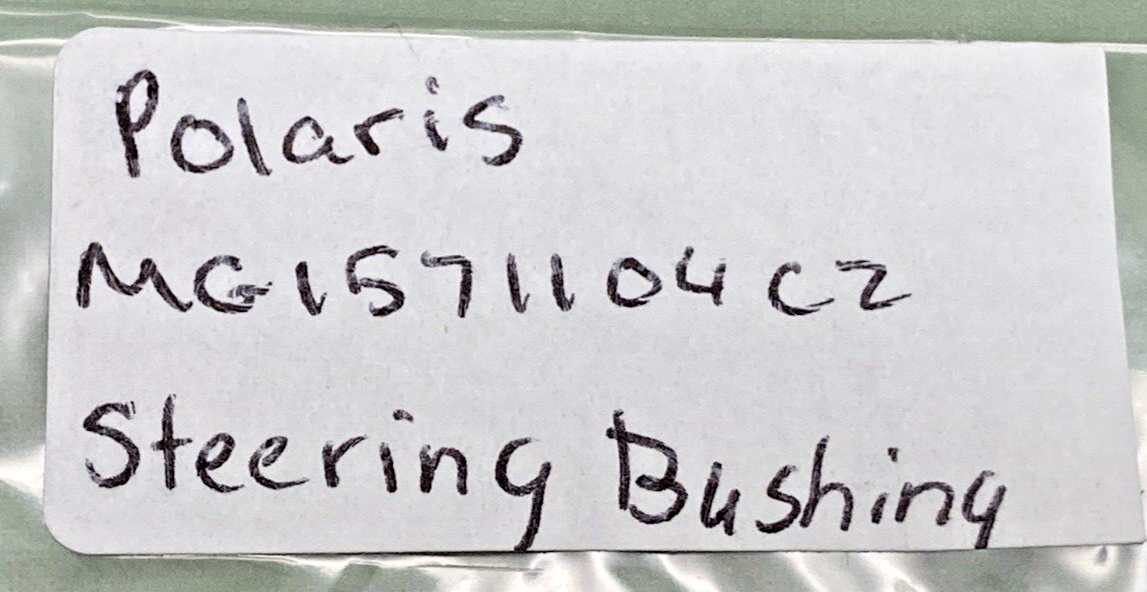 Polaris
MG1571104C2
Steering Bushing